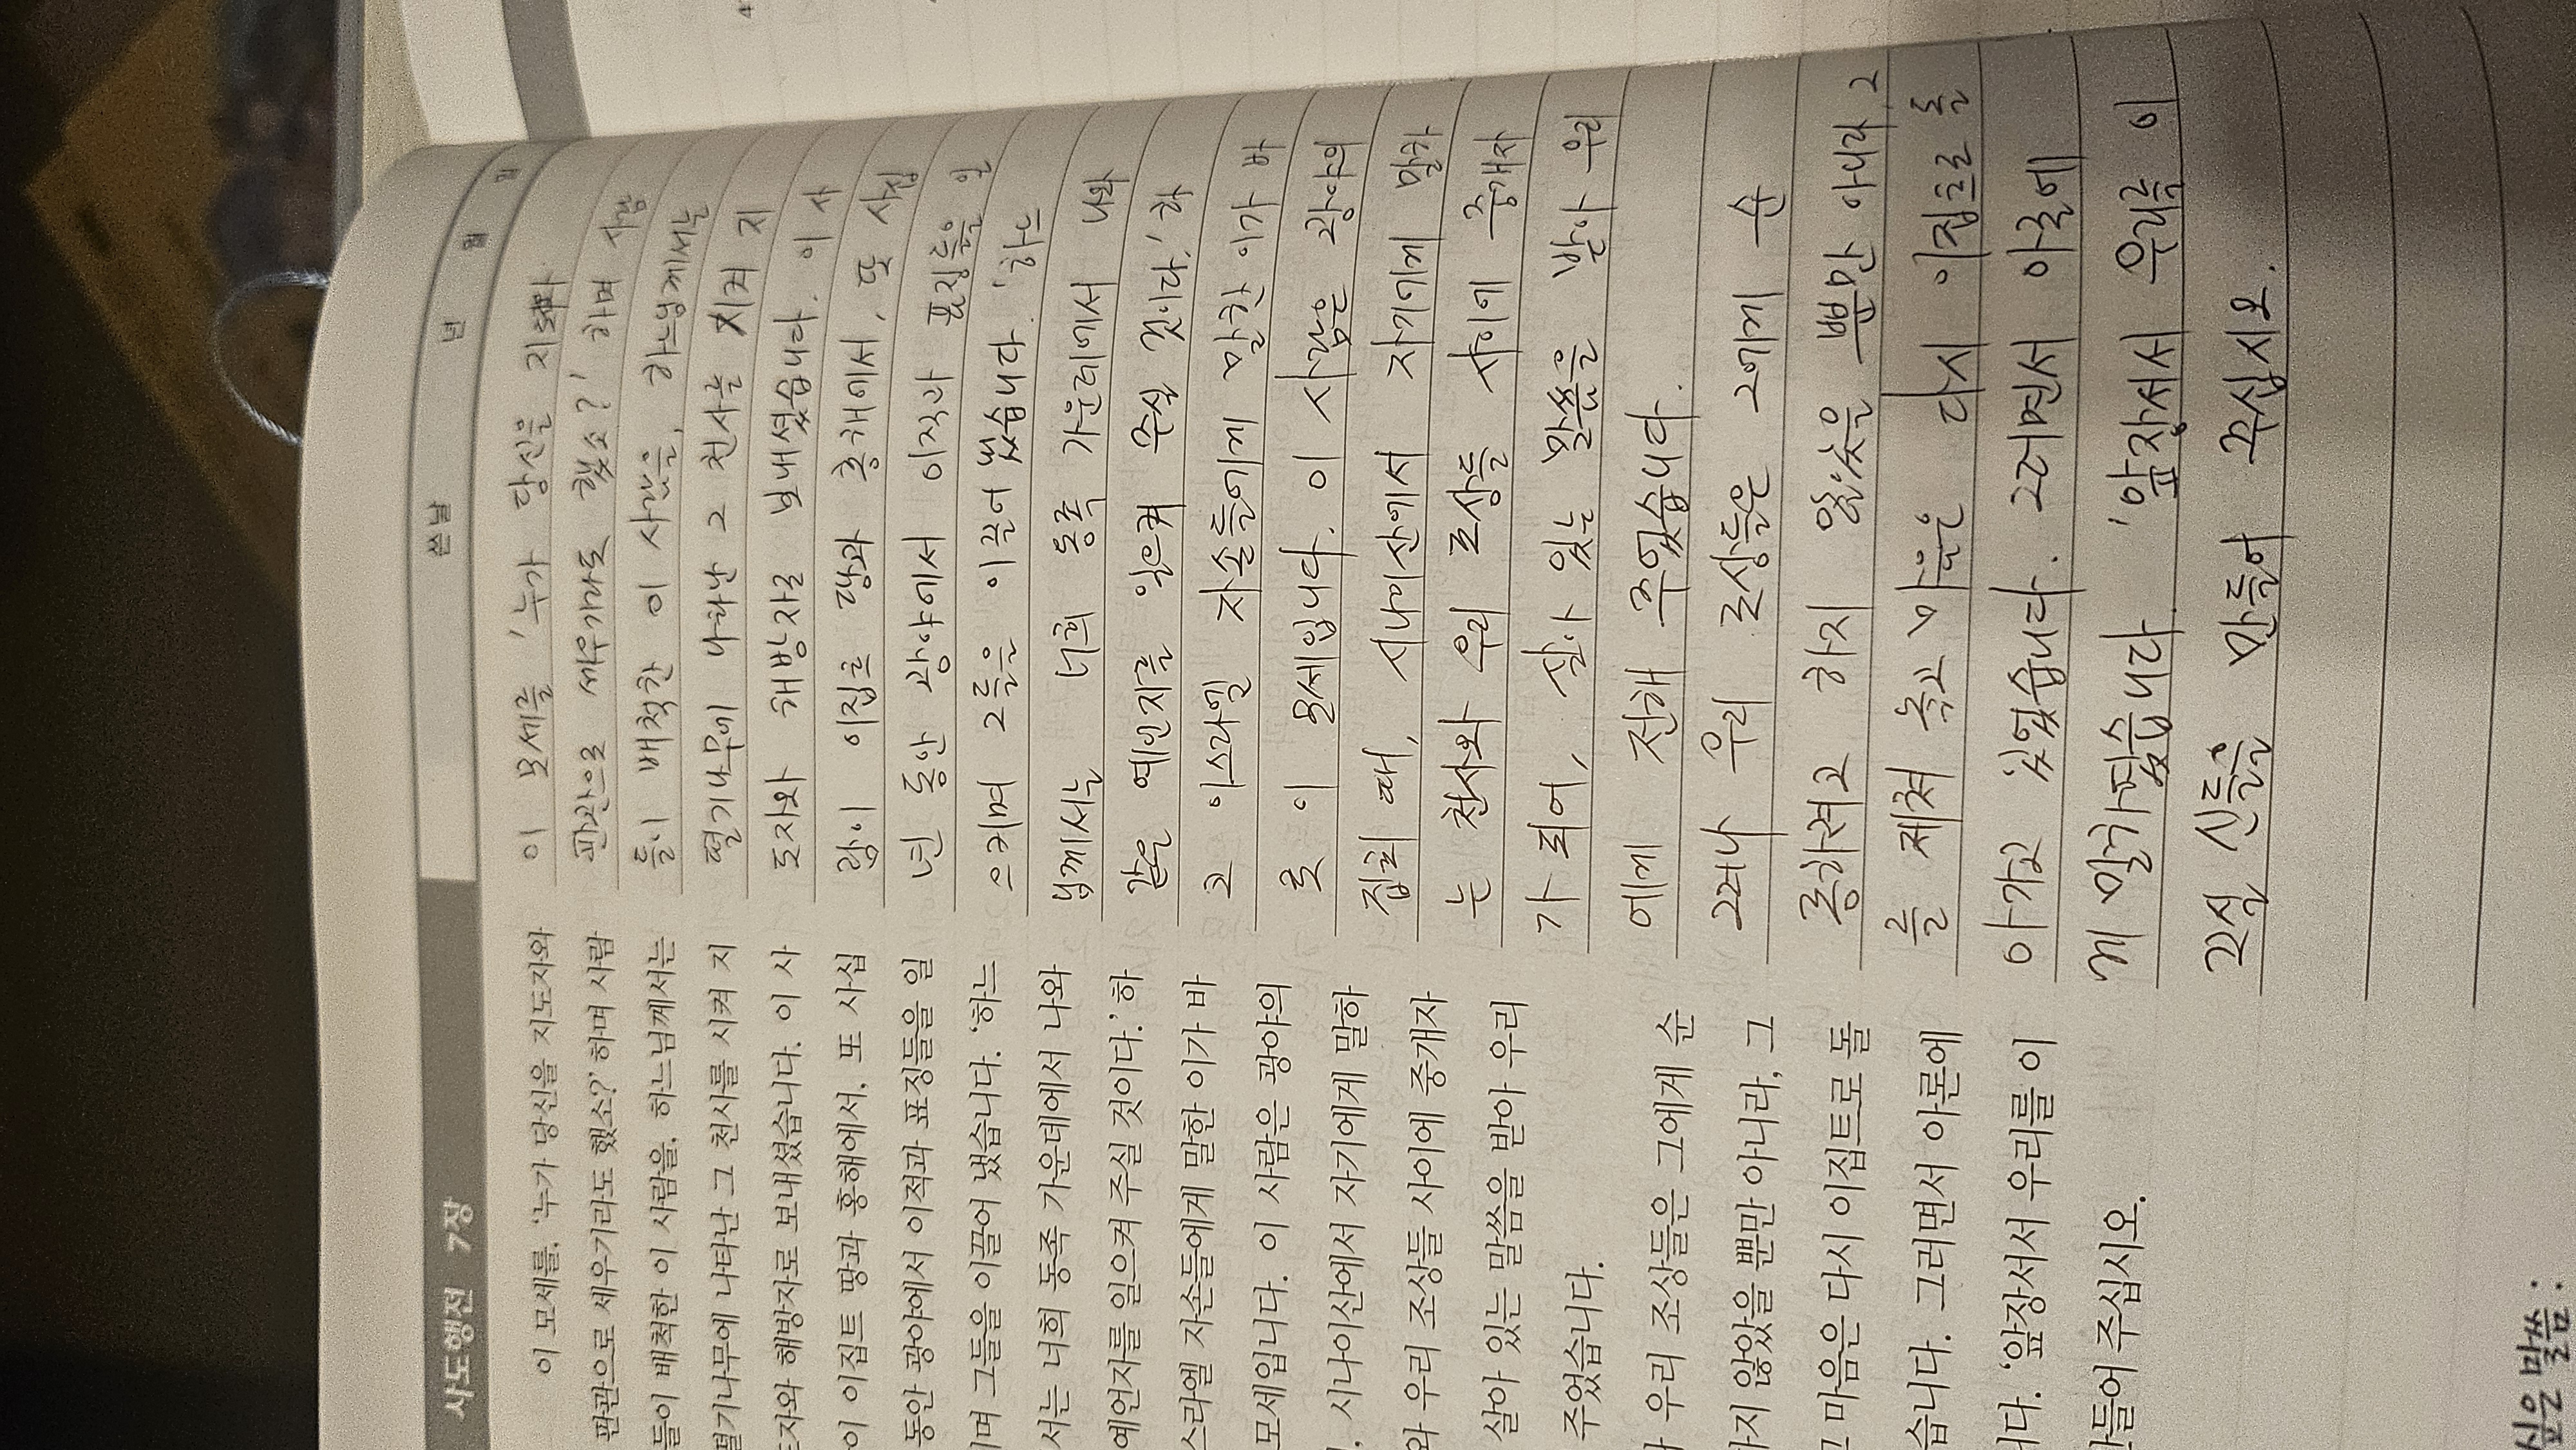 사도행전 7장
이 모세를, '누가 당신을 지도자와
판관으로 세우기라도 했소?' 하며 사람
들이 배척한 이 사람을, 하느님께서는
떨기나무에 나타난 그 천사를 시켜 지
도자와 해방자로 보내셨습니다. 이 사
이 이집트 땅과 홍해에서, 또 사십
동안 광야에서 이적과 표징들을 일
며 그들을 이끌어 냈습니다. '하느
서는 너희 동족 가운데에서 나와
예언자를 일으켜 주실 것이다.' 하
스라엘 자손들에게 말한 이가 바
모세입니다. 이 사람은 광야의
, 시나이산에서 자기에게 말하
와 우리 조상들 사이에 중개자
살아 있는 말씀을 받아 우리
주었습니다.
우리 조상들은 그에게 순
하지 않았을 뿐만 아니라, 그
고 마음은 다시 이집트로 돌
습니다. 그러면서 아론에
니다. '앞장서서 우리를 이
만들어 주십시오.
싶은 말씀 :
쓴날 년 월 일
이 모세를 '누가 당신을
판관으로 세우기라도 했소?' 하며 사람
들이 배척한 이 사람을, 하느님께서는
떨기나무에 나타난 그 천사를 시켜 지
도자와 해방자로 보내셨습니다. 이 사
람이 이집트 땅과 홍해에서, 또 사십
년 동안 광야에서 이적과 표징들을 일
으키며 그들을 이끌어 냈습니다. '하느
님께서는 너희 동족 가운데에서 나와
같은 예언자를 일으켜 주실 것이다.' 하
고 이스라엘 자손들에게 말한 이가 바
로 이 모세입니다. 이 사람은 광야의
집회 때, 시나이산에서 자기에게 말하
는 천사와 우리 조상들 사이에 중개자
가 되어, 살아 있는 말씀을 받아 우리
에게 전해 주었습니다.
그러나 우리 조상들은 그에게 순
종하려고 하지 않았을 뿐만 아니라, 그
를 제쳐 놓고 마음은 다시 이집트로 돌
아가고 있었습니다. 그러면서 아론에
게 말하였습니다. '앞장서서 우리를 이
끄실 신들을 만들어 주십시오.